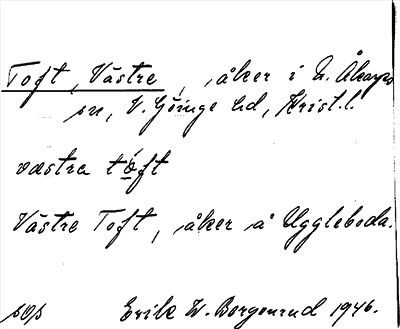 Toft, Västre, åker i N. Åkarps
sn, V. Göinge hd, Krist.l.
västra tóft
Västre Toft, åker å Uggleboda.
Erik W. Bergenrud 1946.